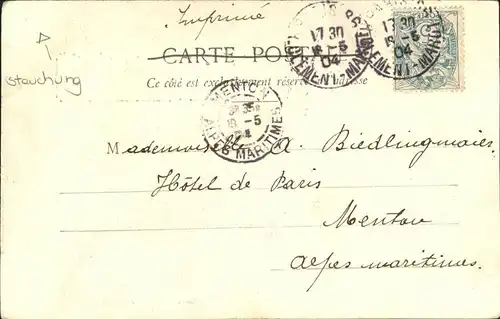 Imprimé
CARTE POS
Ce côté est exclusivement réservé à l'adresse
stauchung
17 30
5
04
17 30
5
04
MENTON
5
ALPES MARITIMES
Mademoiselle A. Biedlingmaier
Hôtel de Paris
Menton
Alpes maritimes.